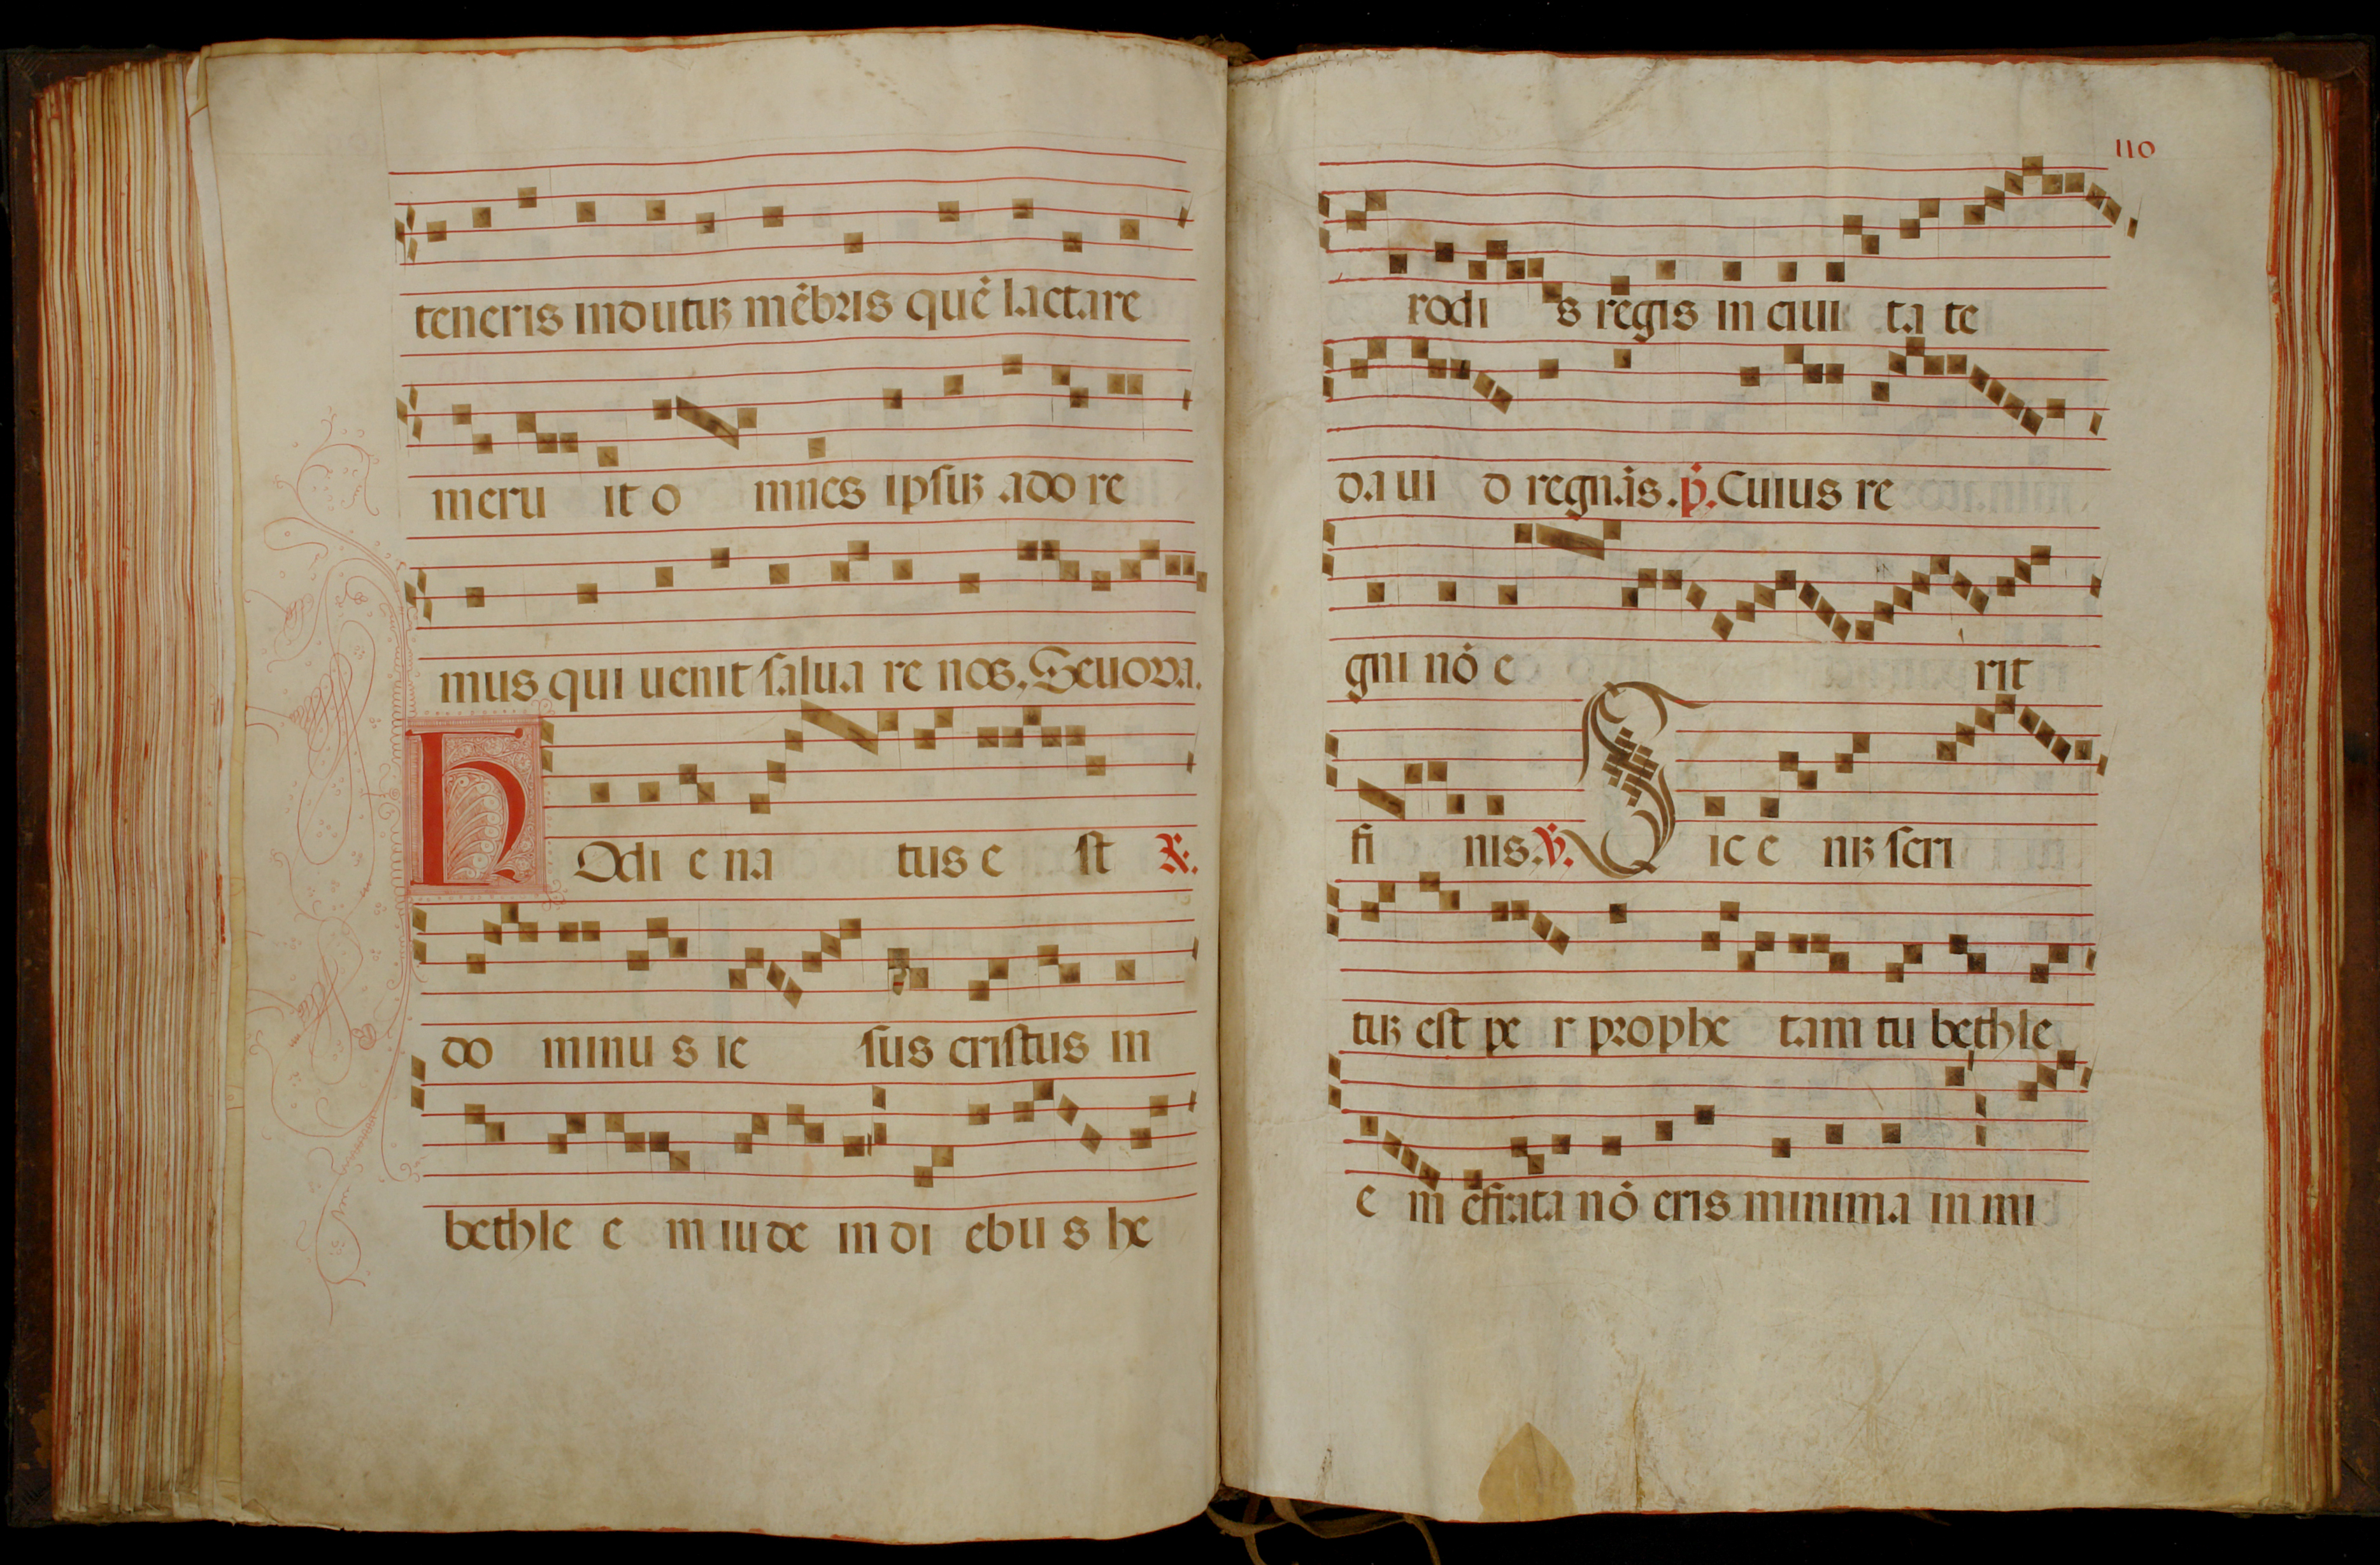 teneris indutū mēbris quē lactare
meru it o mnes ipsū ado re
mus qui uenit salua re nos. Seuoua.
H Odi e na tus e st ℟.
do minu s ie sus cristus in
bethle e m iude in di ebu s he
110
rodi s regis in ciui ta te
da ui d regnās. p̄. Cuius re
gni nō e rit
fi nis. ℣. S ic e nī scri
tū est pe r prophe tam tu bethle
e m efrata nō eris minima in mi